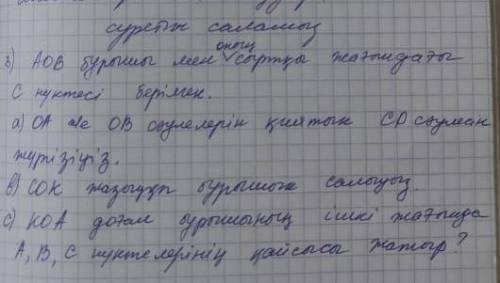 суретін саламыз
3) АОВ бұрышы мен оның сыртқы жағындағы
С нүктесі берілген.
а) ОА және ОВ сәулелерін қиятын СD сәулесін
жүргізіңіз.
в) СОК жазыңқы бұрышын салыңыз.
с) КОА доғал бұрышының ішкі жағында
А, В, С нүктелерінің қайсысы жатыр?